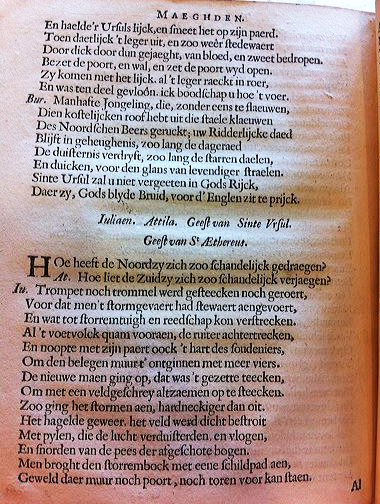 MAEGHDEN.
En haelde'r Ursuls lijck, en smeet het op zijn paerd.
Toen daetlijck 't leger uit, en zoo weêr stedewaert
Door dick door dun gejaeght, van bloed, en zweet bedropen.
Bezet de poort, en wal, en zet de poort wyd open.
Zy komen met het lijck. al 't leger raeckt in roer,
En was ten deel gevloôn. ick boodschap u hoe 't voer.
Bur. Manhafte Jongeling, die, zonder eens te flaeuwen,
Dien kostelijcken roof hebt uit die staele klaeuwen
Des Noordschen Beers geruckt; uw Ridderlijcke daed
Blijft in geheughenis, zoo lang de dageraed
De duisternis verdryft, zoo lang de starren daelen,
En duicken, voor den glans van levendiger straelen.
Sinte Ursul zal u niet vergeeten in Gods Rijck,
Daer zy, Gods blyde Bruid, voor d'Englen zit te prijck.
Iuliaen. Attila. Geest van Sinte Ursul.
Geest van St Æthereus.
HOe heeft de Noordzy zich zoo schandelijck gedraegen?
At. Hoe liet de Zuidzy zich zoo schandelijck verjaegen?
Iu. Trompet noch trommel werd gesteecken noch geroert,
Voor dat men 't stormgevaert had stewaert aengevoert,
En wat tot storremtuigh en reedschap kon verstrecken.
Al 't voetvolck quam vooraen, de ruiter achtertrecken,
En noopte met zijn paert oock 't hart des soudeniers,
Om den belegen muur t' ontginnen met meer viers.
De nieuwe maen ging op, dat was 't gezette teecken,
Om met een veldgeschrey altzaemen op te steecken.
Zoo ging het stormen aen, hardneckiger dan oit.
Het hagelde geweer. het veld werd dicht bestroit
Met pylen, die de lucht verduisterden, en vlogen,
En snorden van de pees der afgeschote bogen.
Men broght den storrembock met eene schildpad aen,
Geweld daer muur noch poort, noch toren voor kan staen.
Al